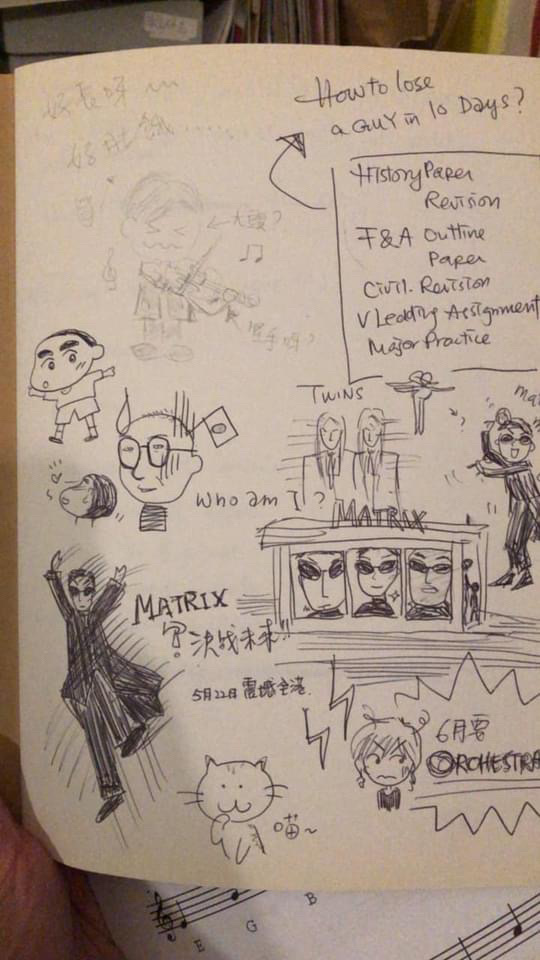 How to lose
a GUY in 10 Days?
History Paper
Revision
F&A Outline
Paper
Civil. Revision
V Leading Assignment
Major Practice
大頭?
TWINS
Who am I?
MATRIX
MATRIX
? 決战未來!!
5月22日 震撼全港
6月要
ORCHESTRA
喵~
E G B